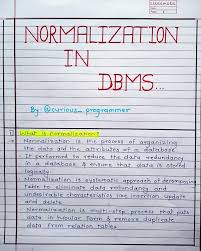 NORMALIZATION
IN
DBMS...
By: @curious_programmer
1) What is normalization?
→ Normalization is the process of organizing
the data and the attributes of a database
→ It performed to reduce the data redundancy
in a database & ensure that data is stored
logically
→ Normalization is systematic approach of decomposing
table to eliminate data redundancy and
undesirable characteristics like insertion, update
and delete.
→ Normalization is multi-step process that puts
data in tabular form & remove duplicate
data from relation tables